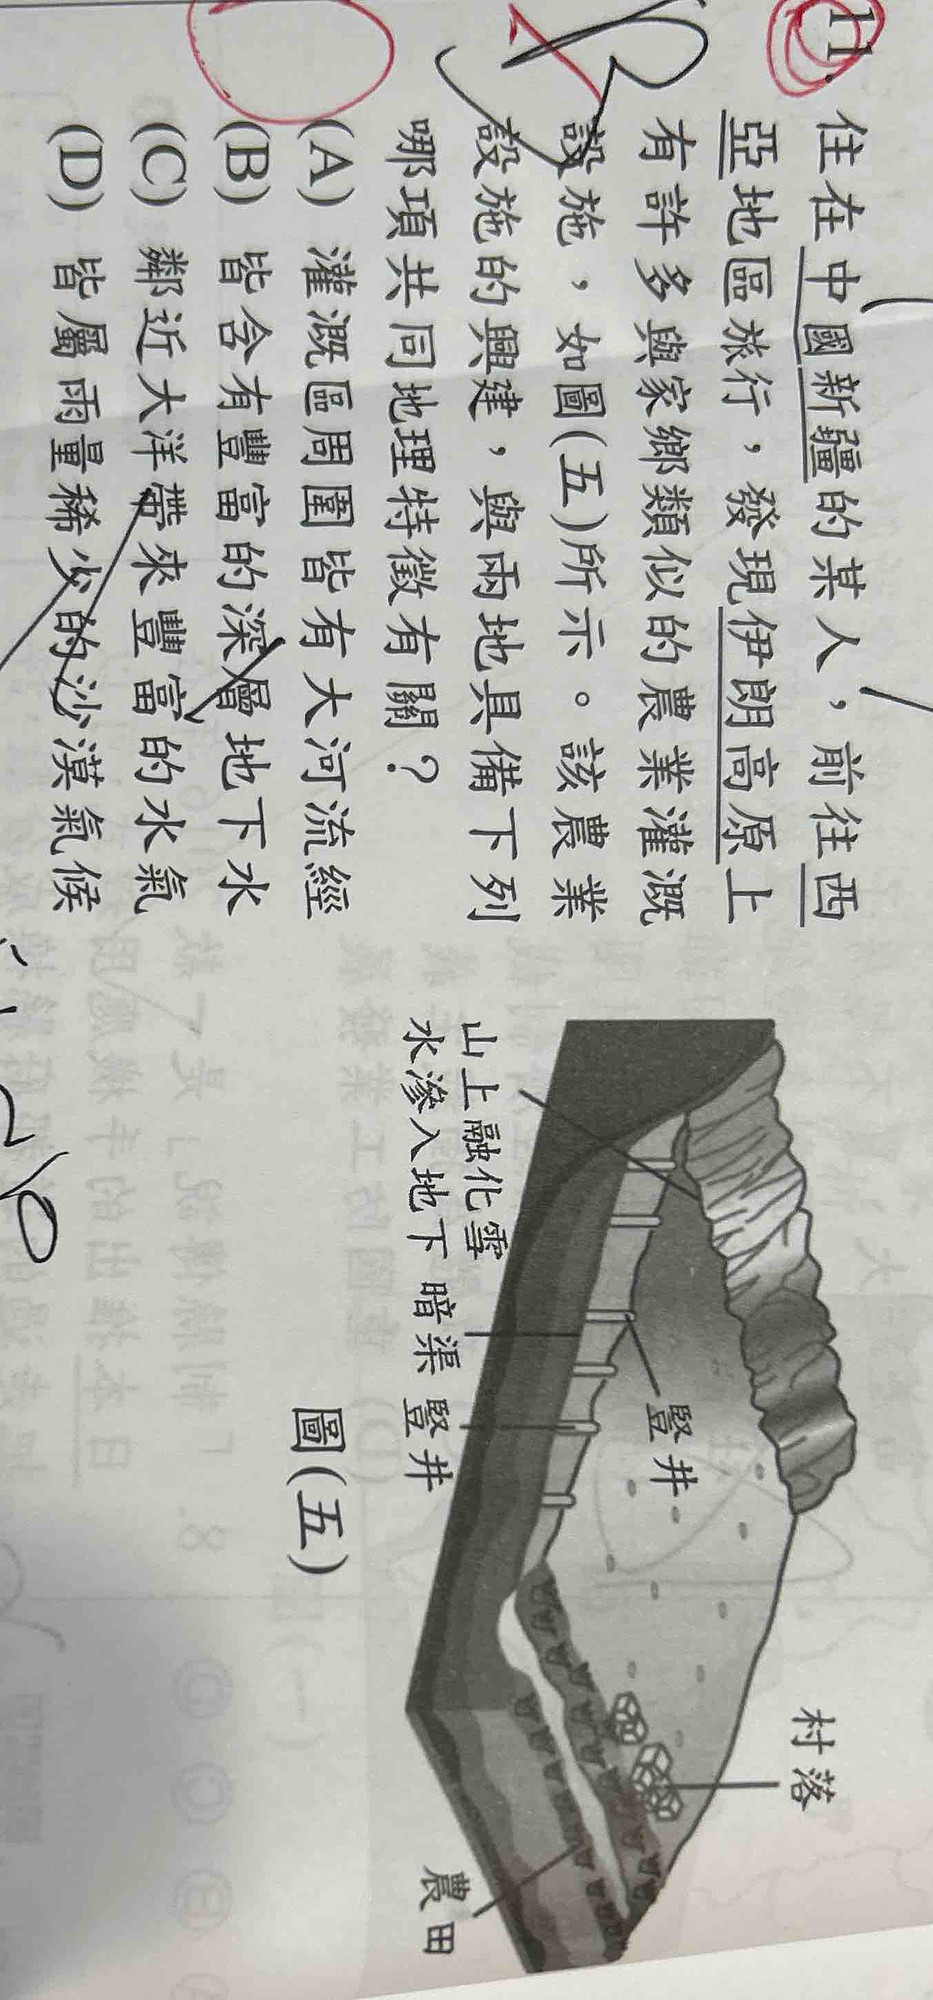 11.
住在中國新疆的某人，前往西
亞地區旅行，發現伊朗高原上
有許多與家鄉類似的農業灌溉
設施，如圖(五)所示。該農業
設施的興建，與兩地具備下列
哪項共同地理特徵有關？
(A) 灌溉區周圍皆有大河流經
(B) 皆含有豐富的深層地下水
(C) 鄰近大洋帶來豐富的水氣
(D) 皆屬雨量稀少的沙漠氣候
村落
豎井
山上融化雪
水滲入地下
暗渠
豎井
農田
圖(五)